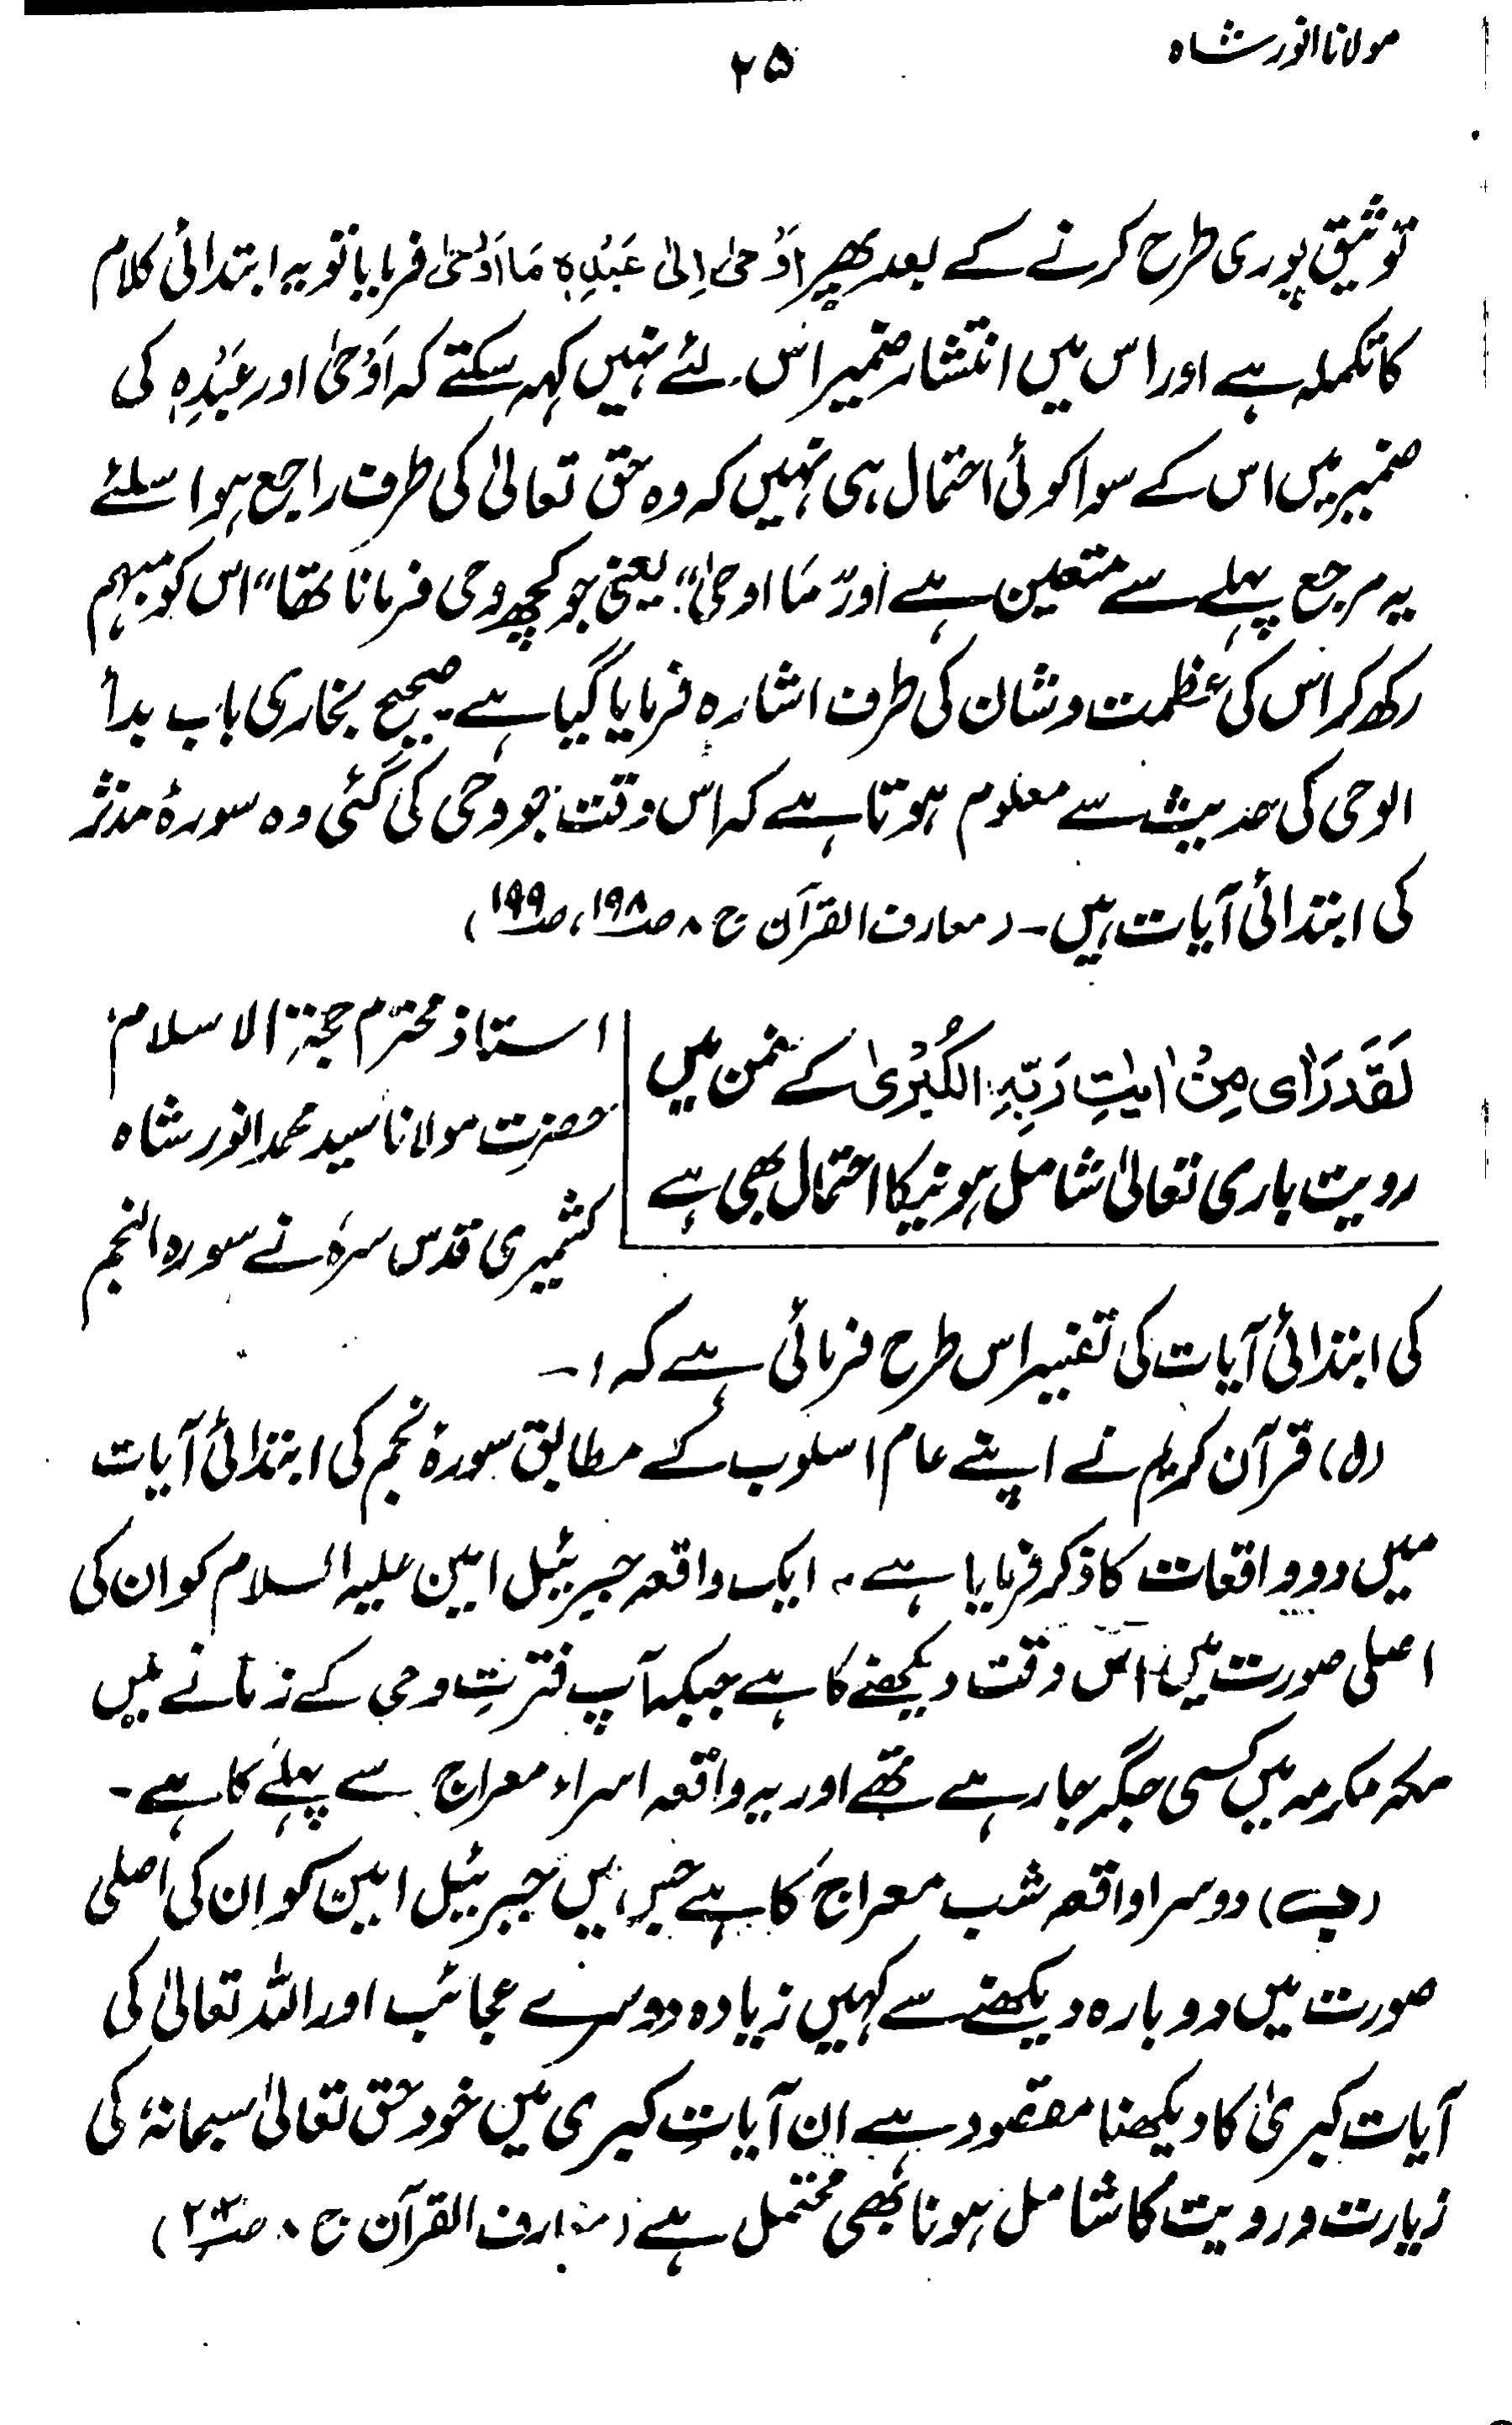 مولانا انور شاہ
۲۵
توثیق پوری طرح کرنے کے بعد پھر اَوْحٰی اِلٰی عَبْدِہٖ مَا اَوْحٰی فرمایا تو یہ ابتدائی کلام
کا تکملہ ہے اور اس میں انتشار ضمیر اس لئے نہیں کہہ سکتے کہ اَوْحٰی اور عَبْدِہٖ کی
ضمیر میں اس کے سوا کوئی احتمال ہی نہیں کہ وہ حق تعالیٰ کی طرف راجع ہو اسلئے
یہ مرجع پہلے سے متعین ہے اور "مَا اوحیٰ" یعنی جو کچھ وحی فرمانا تھا" اس کو مبہم
رکھ کر اس کی عظمت و شان کی طرف اشارہ فرمایا گیا ہے۔ صحیح بخاری باب بدأ
الوحی کی حدیث سے معلوم ہوتا ہے کہ اس وقت جو وحی کی گئی وہ سورۂ مدثر
کی ابتدائی آیات ہیں۔ (معارف القرآن ج ۸ صـ۱۹۸، صـ۱۹۹)
لَقَدْ رَاٰی مِنْ اٰیٰتِ رَبِّہِ الْکُبْرٰی کے ضمن میں
رویت باری تعالیٰ شامل ہونیکا احتمال بھی ہے
استاذ محترم حجۃ الاسلام
حضرت مولانا سید محمد انور شاہ
کشمیری قدس سرہٗ نے سورہ النجم
کی ابتدائی آیات کی تفسیر اس طرح فرمائی ہے کہ :۔
(ا) قرآن کریم نے اپنے عام اسلوب کے مطابق سورۂ نجم کی ابتدائی آیات
میں دو واقعات کا ذکر فرمایا ہے، ایک واقعہ جبرئیل امین علیہ السلام کو ان کی
اصلی صورت میں اس وقت دیکھنے کا ہے جبکہ آپ فترتِ وحی کے زمانے میں
مکہ مکرمہ میں کسی جگہ جا رہے تھے اور یہ واقعہ اسراء معراج سے پہلے کا ہے۔
(ب) دوسرا واقعہ شب معراج کا ہے جس میں جبرئیل امین کو ان کی اصلی
صورت میں دوبارہ دیکھنے سے کہیں زیادہ دوسرے عجائب اور اللہ تعالیٰ کی
آیات کبریٰ کا دیکھنا مقصود ہے ان آیاتِ کبری میں خود حق تعالیٰ سبحانہٗ کی
زیارت و رویت کا شامل ہونا بھی محتمل ہے (معارف القرآن ج ۸